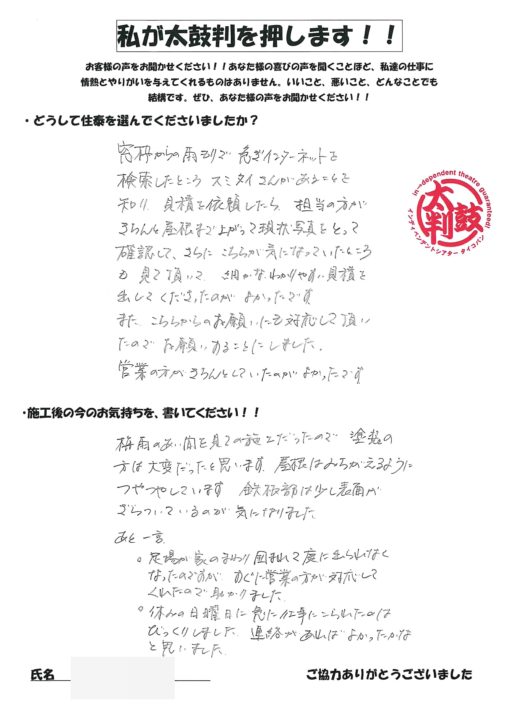 私が太鼓判を押します！！
お客様の声をお聞かせください！！あなた様の喜びの声を聞くことほど、私達の仕事に
情熱とやりがいを与えてくれるものはありません。いいこと、悪いこと、どんなことでも
結構です。ぜひ、あなた様の声をお聞かせください！！
・どうして住泰を選んでくださいましたか？
窓枠からの雨モリで 急ぎインターネットを
検索したところ スミタイさんがあることを
知り 見積を依頼したら 担当の方が
きちんと屋根まで上がって現状写真をとって
確認して、さらに こちらが気になっていたところ
も 見て頂いて 細かな、わかりやすい見積を
出してくださったのが よかったです
また こちらからのお願いにも対応して頂い
たので お願いすることにしました。
営業の方がきちんとしていたのがよかったです
in-dependent theatre guaranteed!
太鼓判
インディペンデントシアター タイコバン
・施工後の今のお気持ちを、書いてください！！
梅雨の合い間を見ての施工だったので 塗装の
方は大変だったと思います 屋根はみちがえるように
つやつやしています 鉄板部は少し表面が
ざらついているのが 気になりました
あと一言
○ 足場が家のまわり囲まれて庭に出られなく
なったのですが すぐに営業の方が対応して
くれたので助かりました
○ 休みの日曜日に急に仕事にこられたのは
びっくりしました 連絡があればよかったかな
と思いました。
氏名
ご協力ありがとうございました